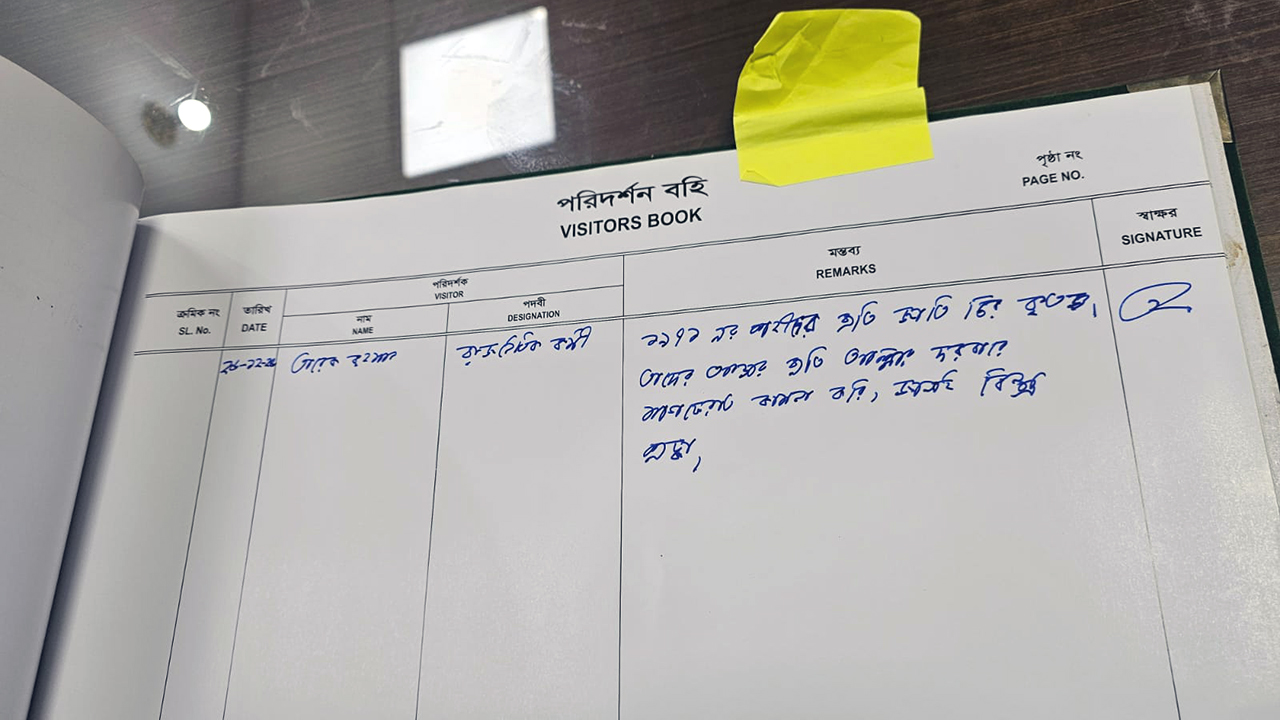 পরিদর্শন বহি
VISITORS BOOK
পৃষ্ঠা নং
PAGE NO.
ক্রমিক নং
SL. No.
তারিখ
DATE
পরিদর্শক
VISITOR
নাম
NAME
পদবী
DESIGNATION
মন্তব্য
REMARKS
স্বাক্ষর
SIGNATURE
তারেক রহমান
রাজনৈতিক কর্মী
১৯৭১ এর শহীদের প্রতি জাতি চির কৃতজ্ঞ,
তাদের আত্মার প্রতি আল্লাহর দরবারে
মাগফেরাত কামনা করি,
শ্রদ্ধা,